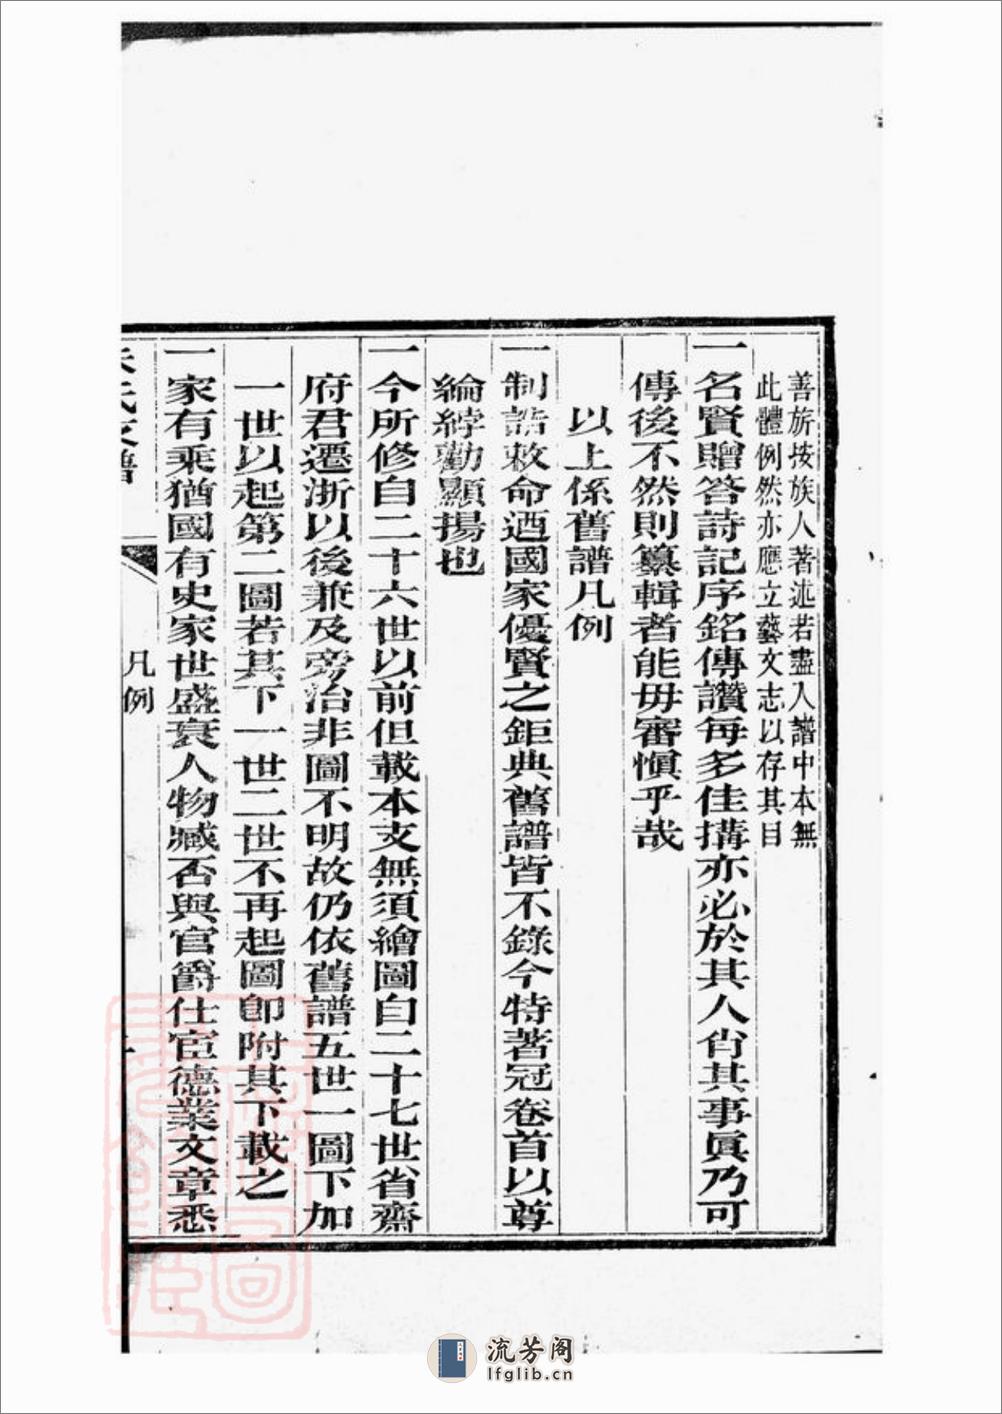 善旂按族人著述若盡入譜中本無
此體例然亦應立藝文志以存其目
一名賢贈答詩記序銘傳讚每多佳搆亦必於其人肖其事眞乃可
傳後不然則纂輯者能毋審愼乎哉
以上係舊譜凡例
一制誥敕命迺國家優賢之鉅典舊譜皆不錄今特著冠卷首以尊
綸綍勸顯揚也
一今所修自二十六世以前但載本支無須繪圖自二十七世省齋
府君遷浙以後兼及旁治非圖不明故仍依舊譜五世一圖下加
一世以起第二圖若其下一世二世不再起圖卽附其下載之
一家有乘猶國有史家世盛衰人物臧否與官爵仕宦德業文章悉
氏支譜
凡例
流芳阁
lfglib.cn